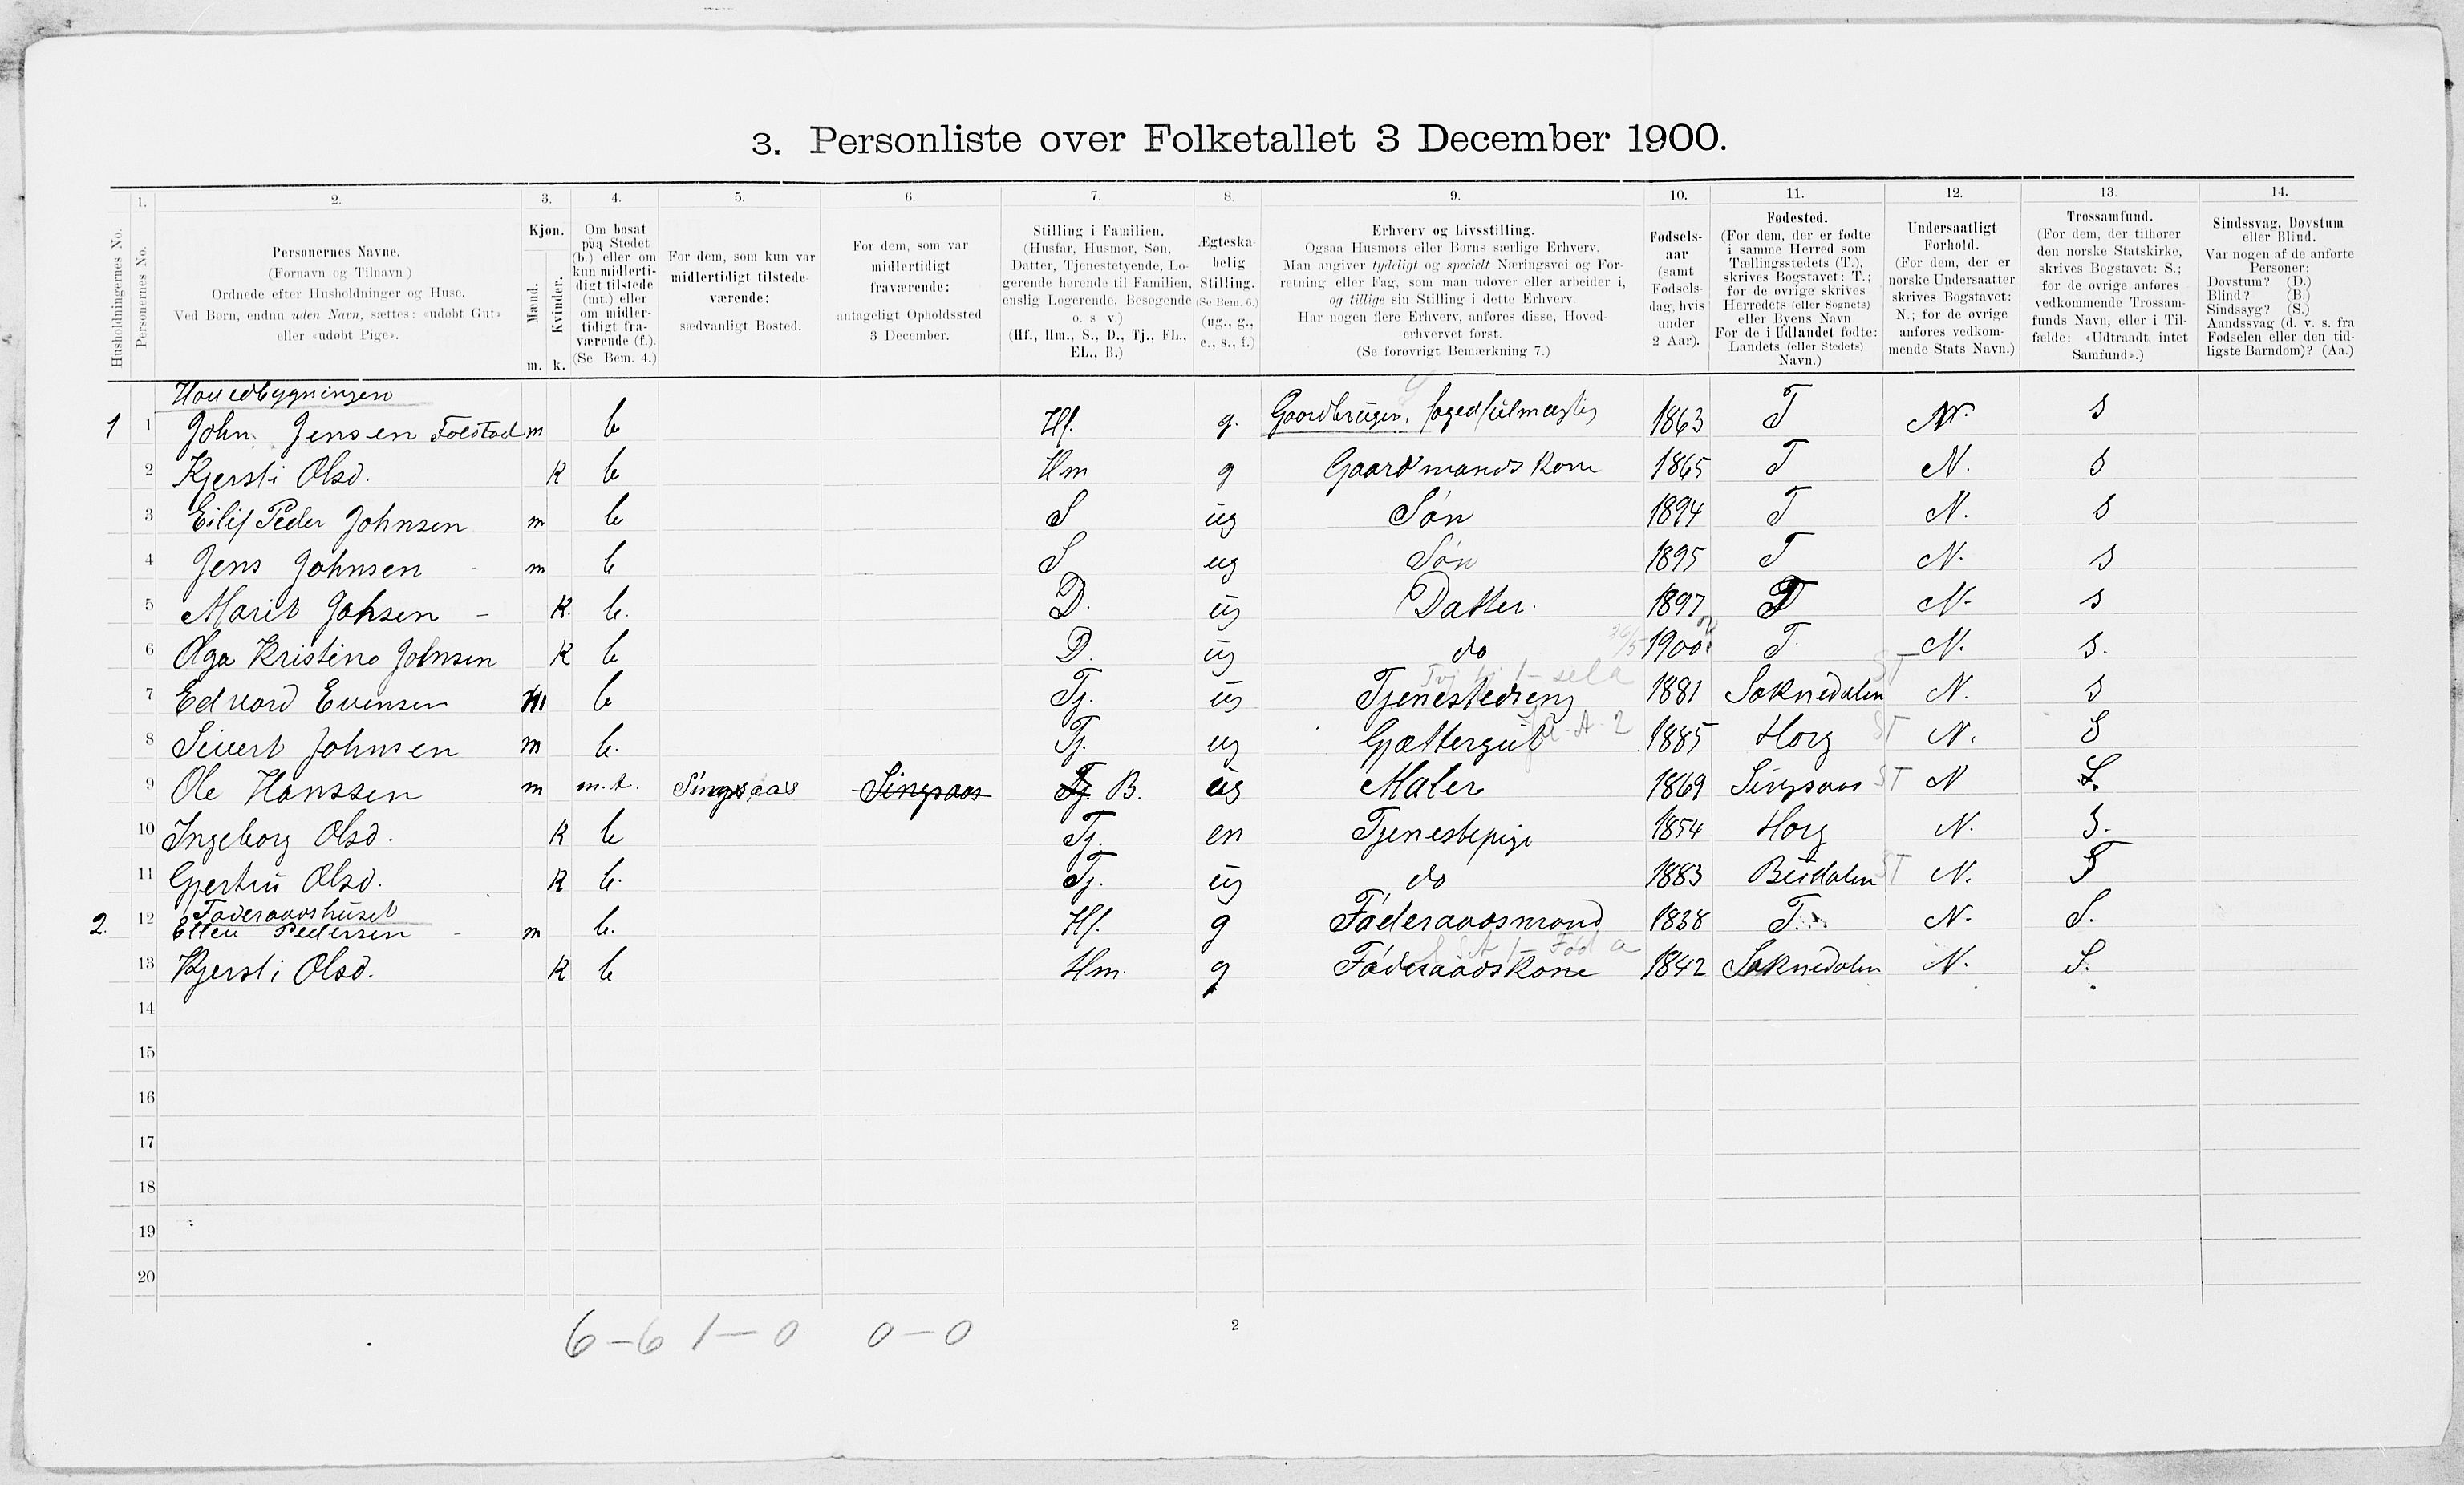 3. Personliste over Folketallet 3 December 1900.
1. 2. 3. 4. 5. 6. 7. 8. 9. 10. 11. 12. 13. 14.
Husholdningernes No.
Personernes No.
Personernes Navne.
(Fornavn og Tilnavn)
Ordnede efter Husholdninger og Huse.
Ved Børn, endnu uden Navn, sættes: «udøbt Gut»
eller «udøbt Pige».
Kjøn.
Mænd.
Kvinder.
m. k.
Om bosat
paa Stedet
(b.) eller om
kun midlerti-
digt tilstede
(mt.) eller
om midler-
tidigt fra-
værende (f.).
(Se Bem. 4.)
For dem, som kun var
midlertidigt tilstede-
værende:
sædvanligt Bosted.
For dem, som var
midlertidigt
fraværende:
antageligt Opholdssted
3 December.
Stilling i Familien.
(Husfar, Husmor, Søn,
Datter, Tjenestetyende, Lo-
gerende hørende til Familien,
enslig Logerende, Besøgende
o. s. v.)
(Hf., Hm., S., D., Tj., FL.,
EL., B.)
Ægteska-
belig
Stilling.
(Se Bem. 6.)
(ug., g.,
e., s., f.)
Erhverv og Livsstilling.
Ogsaa Husmors eller Børns særlige Erhverv.
Man angiver tydeligt og specielt Næringsvei og For-
retning eller Fag, som man udøver eller arbeider i,
og tillige sin Stilling i dette Erhverv
Har nogen flere Erhverv, anføres disse, Hoved-
erhvervet først.
(Se forøvrigt Bemærkning 7.)
Fødsels-
aar
(samt
Fødsels-
dag, hvis
under
2 Aar).
Fødested.
(For dem, der er fødte
i samme Herred som
Tællingsstedets (T.),
skrives Bogstavet: T.;
for de øvrige skrives
Herredets (eller Sognets)
eller Byens Navn.
For de i Udlandet fødte:
Landets (eller Stedets)
Navn.)
Undersaatligt
Forhold.
(For dem, der er
norske Undersaatter
skrives Bogstavet:
N.; for de øvrige
anføres vedkom-
mende Stats Navn.)
Trossamfund.
(For dem, der tilhører
den norske Statskirke,
skrives Bogstavet: S.;
for de øvrige anføres
vedkommende Trossam-
funds Navn, eller i Til-
fælde: «Udtraadt, intet
Samfund».)
Sindssvag, Døvstum
eller Blind.
Var nogen af de anførte
Personer:
Døvstum? (D.)
Blind? (B.)
Sindssyg? (S.)
Aandssvag (d. v. s. fra
Fødselen eller den tid-
ligste Barndom)? (Aa.)
Hovedbygningen
1 1 John Jensen Folstad m b Hf. g. Gaardbruger, fogedfuldmægtig 1863 T N. S
2 Kjersti Olsd. K b Hm g Gaardmandskone 1865 T N. S
3 Eilif Peder Johnsen m b S ug Søn 1894 T N. S
4 Jens Johnsen m b S ug Søn 1895 T N. S
5 Marit Johsen - K. b. D. ug Datter. 1897 T N. S
6 Olga Kristine Johnsen K b D. ug do 30/5 1900 T. N. S.
7 Edvard Evensen m b Tj. ug Tjenestedreng 1881 Soknedalen ST N. S
8 Sivert Johnsen m b. Tj. ug Gjættergut 1885 Horg ST N. S
9 Ole Hanssen m m.t. Singsaas Singsaas Tj. B. ug Maler 1869 Singsaas ST N S.
10 Ingeborg Olsd. K b Tj. en Tjenestepige 1854 Horg N. S.
11 Gjertru Olsd. K b. Tj. ug do 1883 Budalen ST N. S
Føderaadshuset
2. 12 Ellev Pedersen m b. Hf. g Føderaadsmand 1838 T. N. S.
13 Kjersti Olsd. K b Hm. g Føderaadskone 1842 Soknedalen N. S.
14
15
16
17
18
19
20
6-6 1-0 0-0
2